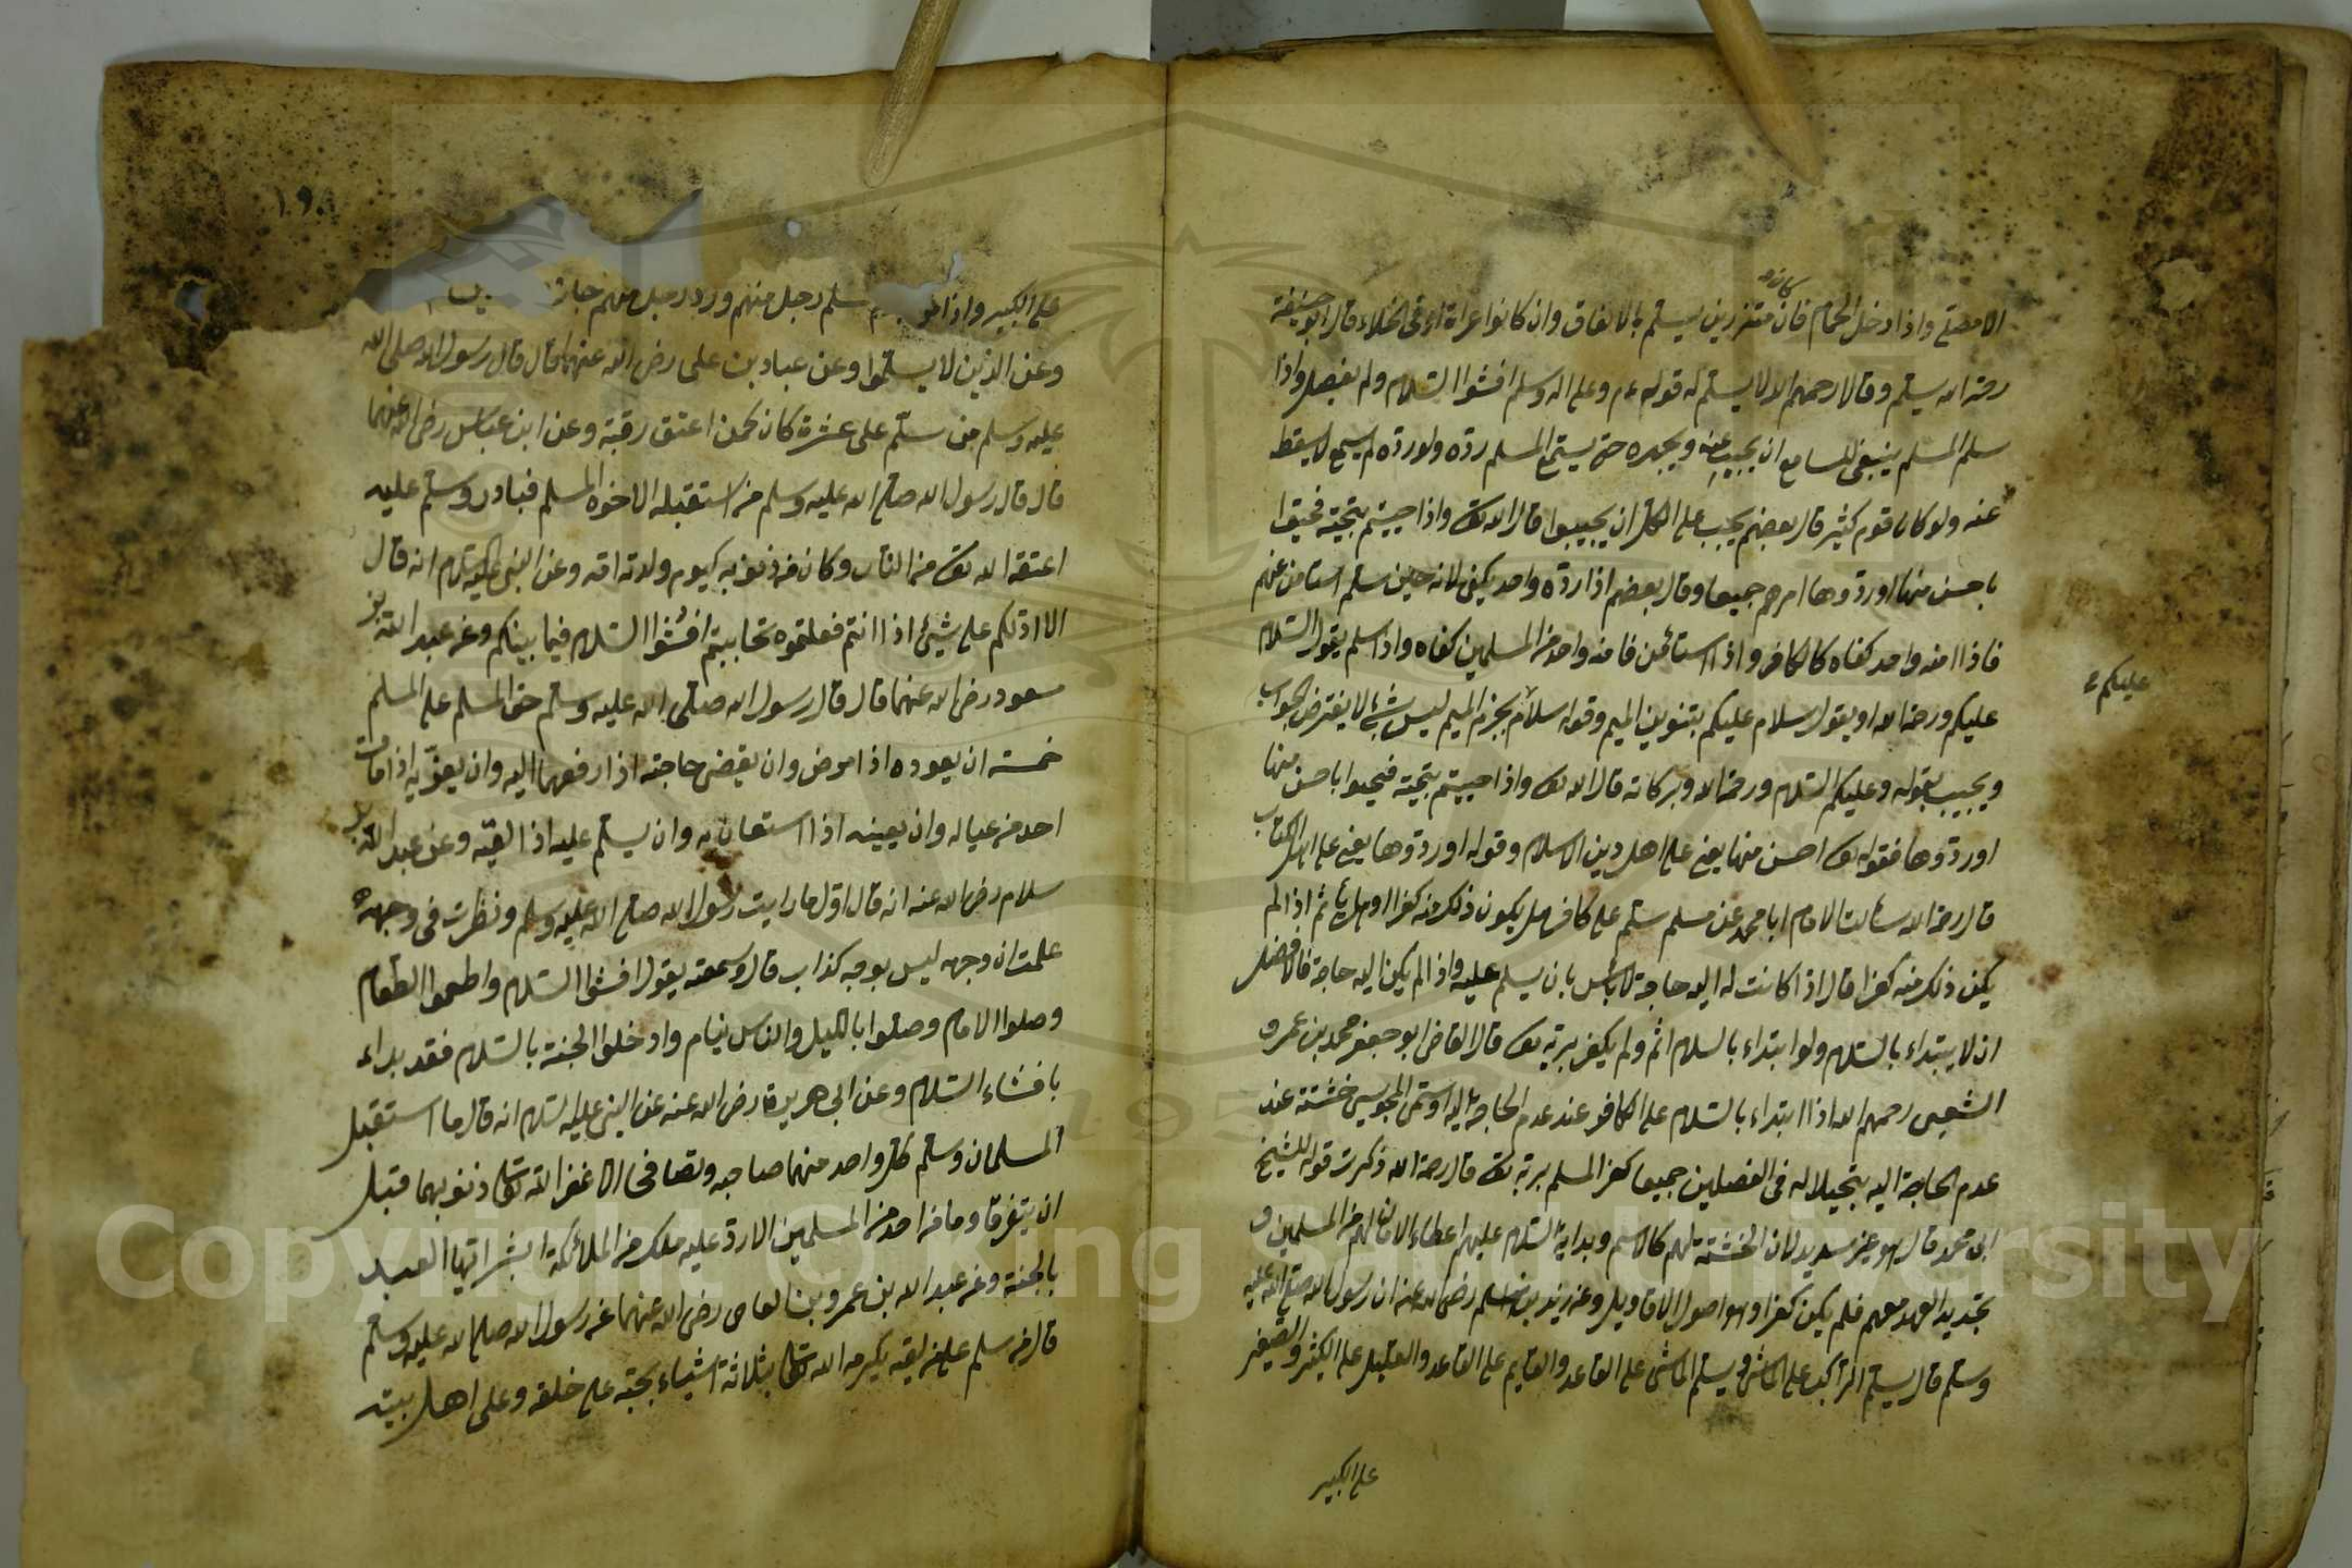 الا مصلح واذا دخل الحمام فان كانوا متزرين يسلم بالاتفاق وان كانوا عراة او فى الخلاء قال ابو حنيفة
رحمة الله يسلم وقالا رحمهم الله لا يسلم له قوله عم وعلى اله وسلم افشوا السلام ولم يفصل واذا
سلم المسلم ينبغى للسامع ان يجيب عنه ويجهره حتى يستمع المسلم رده ولو رده لم يسمع لا يسقط
عنه ولو كان قوم كثير قال بعضهم يجب على الكل ان يجيبوا قال الله تع واذا حييتم بتحية فحيوا
باحسن منها او ردوها امرهم جميعا وقال بعضهم اذا رده واحد يكفى لانه حين سلم استامن عنهم
فاذا امنه واحد كفاه كالكافر واذا استأمن فامنه واحد من المسلمين كفاه واذا سلم يقول السلام
عليكم ورحمة الله او يقول سلام عليكم بتنوين الميم وقوله سلام بجزم الميم ليس بشئ لا يفترض الجواب
عليكم
ويجيب بقوله وعليكم السلام ورحمة الله وبركاته قال الله تع واذا حييتم بتحية فحيوا باحسن منها
او ردوها فقوله تع احسن منها يعنى على اهل دين الاسلام وقوله او ردوها يعنى على اهل الكتاب
قال رحمة الله سألت الامام ابا محمد عن مسلم سلم على كافر هل يكون ذلك منه كفرا او هل يأثم اذا لم
يكن ذلك منه كفرا قال اذا كانت له اليه حاجة لا بأس بان يسلم عليه واذا لم يكن اليه حاجة فالافضل
ان لا يبتداء بالسلام ولو ابتداء بالسلام اثم ولم يكفر بربه تع قال القاضى ابو جعفر محمد بن عمرو
الشعبى رحمهم الله اذا ابتداء بالسلام على الكافر عند عدم الحاجة اليه او المجوسى عند
عدم الحاجة اليه تبجيلا له فى الفصلين جميعا كفر المسلم بربه تع قال رحمة الله ذكرت قوله للشيخ
ابى محمد قال هو غير سديد لان لهم كالاسم وبداية السلام عليهم اعطاء الامان لهم من المسلمين و
تجديد العهد معهم فلم يكن كفرا وهو اصول الاقاويل وعن زيد بن اسلم رضى الله عنه ان رسول الله صلى الله عليه
وسلم قال يسلم الراكب على الماشى ويسلم الماشى على القاعد والقايم على القاعد والقليل على الكثير والصغير
على الكبير
١٩٠
على الكبير واذا سلم رجل منهم ورد رجل منهم جاز
وعن الذين لا يسلموا وعن عباد بن على رضى الله عنهما قال قال رسول الله صلى الله
عليه وسلم من سلم على عشرة كان كمن اعتق رقبة وعن ابن عباس رضى الله عنهما
قال قال رسول الله صلى الله عليه وسلم من استقبله الاخوه المسلم فبادر وسلم عليه
اعتقه الله تع من النار وكان من ذنوبه كيوم ولدته امه وعن النبى عليه السلام انه قال
الا ادلكم على شيئ اذا انتم فعلتموه تحاببتم افشوا السلام فيما بينكم وعن عبد الله بن
مسعود رضى الله عنهما قال قال رسول الله صلى الله عليه وسلم حق المسلم على المسلم
خمسة ان يعوده اذا مرض وان يقضى حاجته اذا رفعها اليه وان يعزيه اذا مات
احد من عياله وان يعينه اذا استعان به وان يسلم عليه اذا لقيه وعن عبد الله بن
سلام رضى الله عنه انه قال اول ما رايت رسول الله صلى الله عليه وسلم ونظرت فى وجهه
علمت ان وجهه ليس بوجه كذاب قال وسمعته يقول افشوا السلام واطعموا الطعام
وصلوا الامام وصلوا بالليل والناس نيام وادخلوا الجنة بالسلام فقد بداء
بافشاء السلام وعن ابى هريرة رضى الله عنه عن النبى عليه السلام انه قال ما استقبل
المسلمان وسلم كل واحد منهما صاحبه وتصافحا الا غفر الله تعالى ذنوبهما قبل
ان يتفرقا وما من احد من المسلمين الا رد عليه ملك من الملائكة ابشر ايها العبد
بالجنة وعن عبد الله بن عمرو بن العاص رضى الله عنهما عن رسول الله صلى الله عليه وسلم
قال من سلم على من لقيه يكرمه الله تعالى بثلاثة اشياء بحبه على خلقه وعلى اهل بيته
Copyright © King Saud University